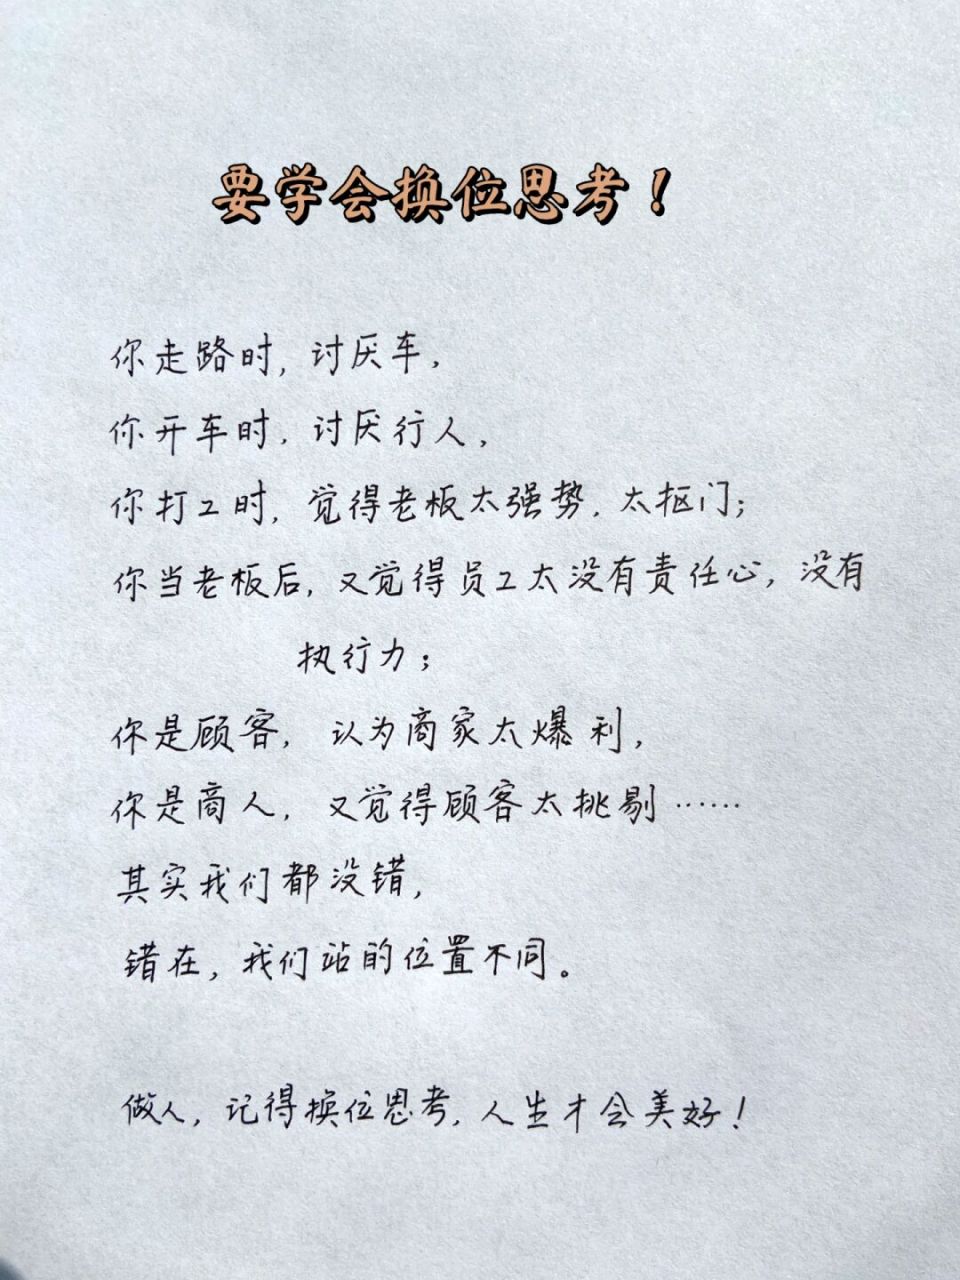 要学会换位思考！
你走路时，讨厌车，
你开车时，讨厌行人，
你打工时，觉得老板太强势，太抠门；
你当老板后，又觉得员工太没有责任心，没有
执行力；
你是顾客，认为商家太爆利，
你是商人，又觉得顾客太挑剔……
其实我们都没错，
错在，我们站的位置不同。
做人，记得换位思考，人生才会美好！